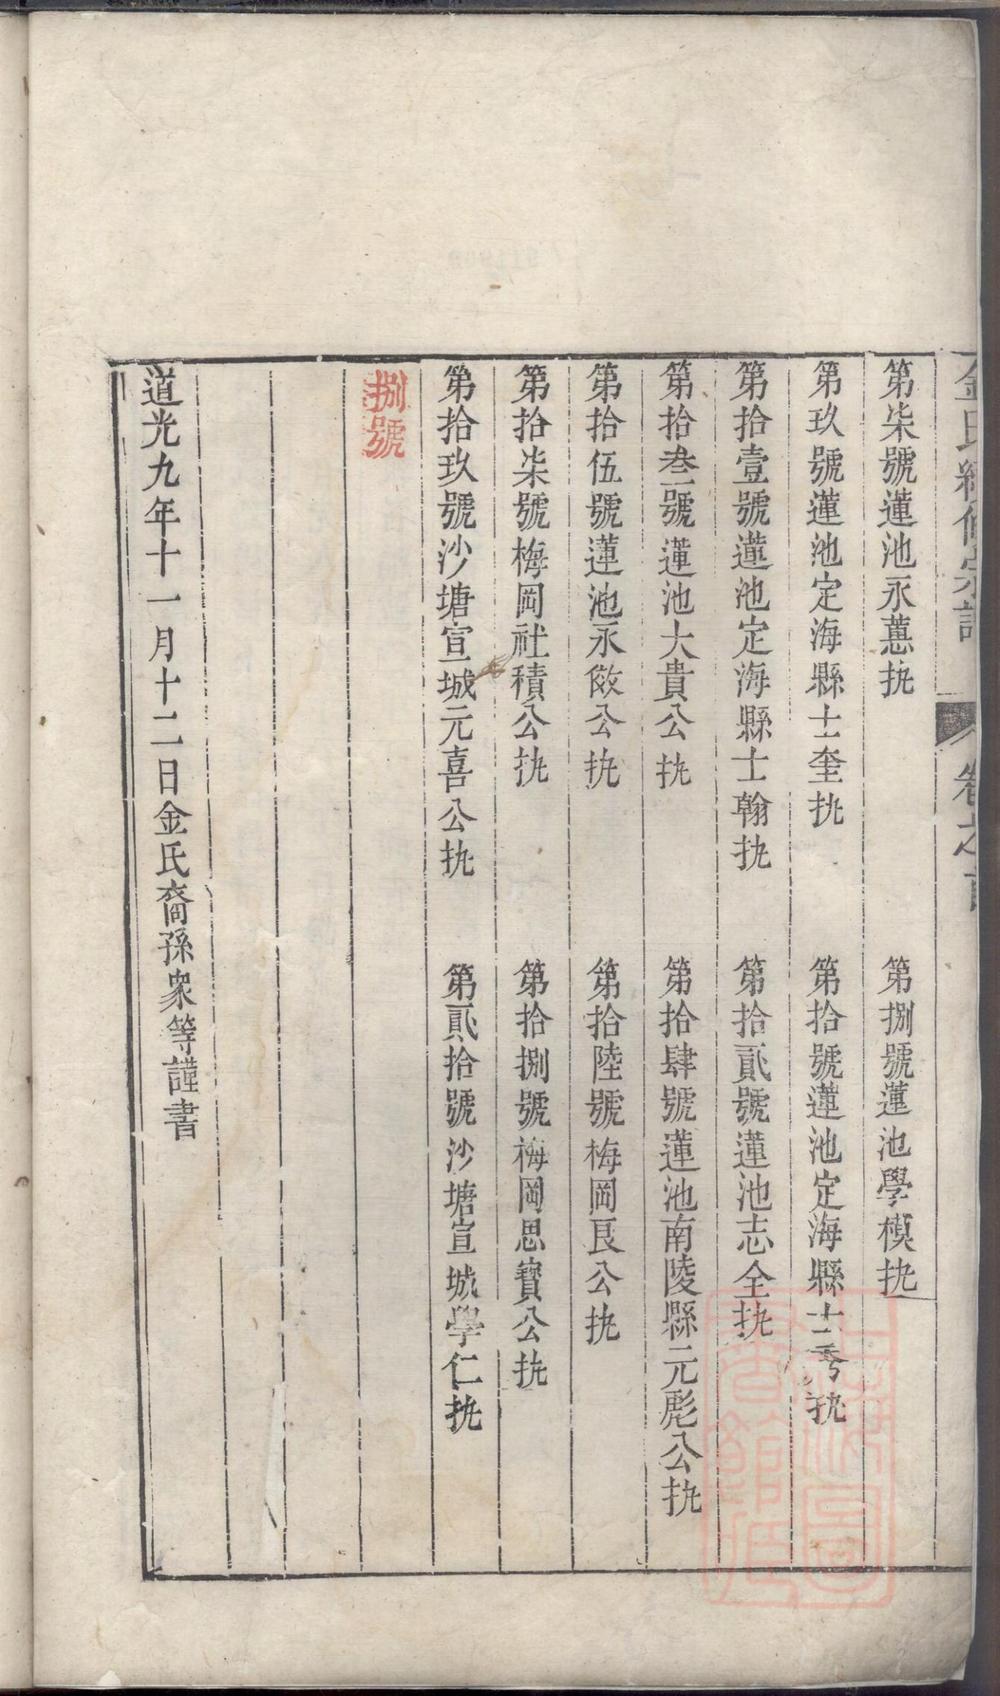 金氏續修宗譜 卷之首
第柒號蓮池永蕙执
第捌號蓮池學模执
第玖號蓮池定海縣士奎执
第拾號蓮池定海縣士秀执
第拾壹號蓮池定海縣士翰执
第拾貳號蓮池志全执
第拾叁號蓮池大貴公执
第拾肆號蓮池南陵縣元彪公执
第拾伍號蓮池永斂公执
第拾陸號梅岡艮公执
第拾柒號梅岡社積公执
第拾捌號梅岡思寶公执
第拾玖號沙塘宣城元喜公执
第貳拾號沙塘宣城學仁执
捌號
道光九年十一月十二日金氏裔孫衆等謹書